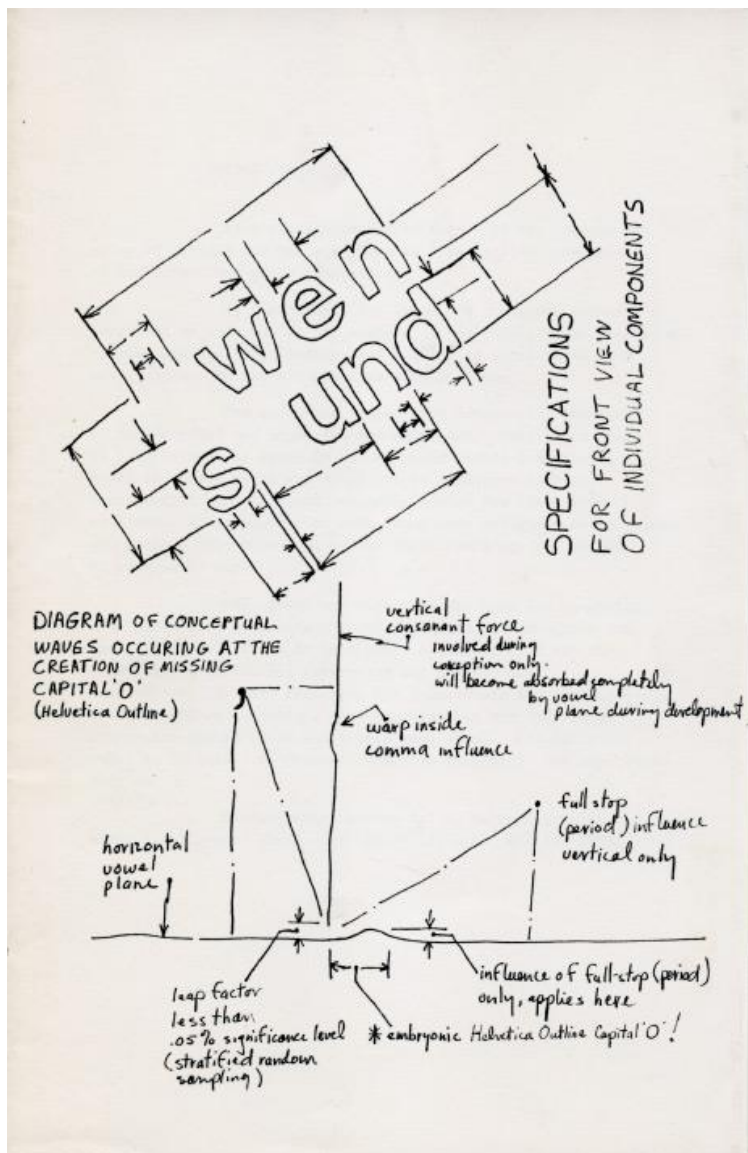 wen
und
s
SPECIFICATIONS
FOR FRONT VIEW
OF INDIVIDUAL COMPONENTS
DIAGRAM OF CONCEPTUAL
WAVES OCCURING AT THE
CREATION OF MISSING
CAPITAL 'O'
(Helvetica Outline)
vertical
consonant force
involved during
coception only.
will become absorbed completely
by vowel
plane during development
warp inside
comma influence
full stop
(period) influence
vertical only
horizontal
vowel
plane
leap factor
less than
.05% significance level
(stratified random
sampling)
influence of full-stop (period)
only, applies here
* embryonic Helvetica Outline Capital 'O' !